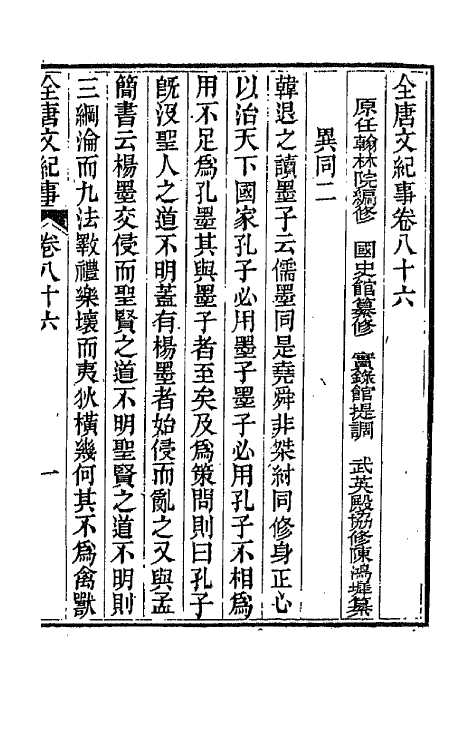 全唐文紀事卷八十六
原任翰林院編修　國史館纂修　實錄館提調　武英殿協修陳鴻墀纂
異同二
韓退之讀墨子云儒墨同是堯舜非桀紂同修身正心
以治天下國家孔子必用墨子墨子必用孔子不相爲
用不足爲孔墨其與墨子者至矣及爲策問則曰孔子
旣沒聖人之道不明蓋有楊墨者始侵而亂之又與孟
簡書云楊墨交侵而聖賢之道不明聖賢之道不明則
三綱淪而九法斁禮樂壞而夷狄橫幾何其不爲禽獸
全唐文紀事　卷八十六　一